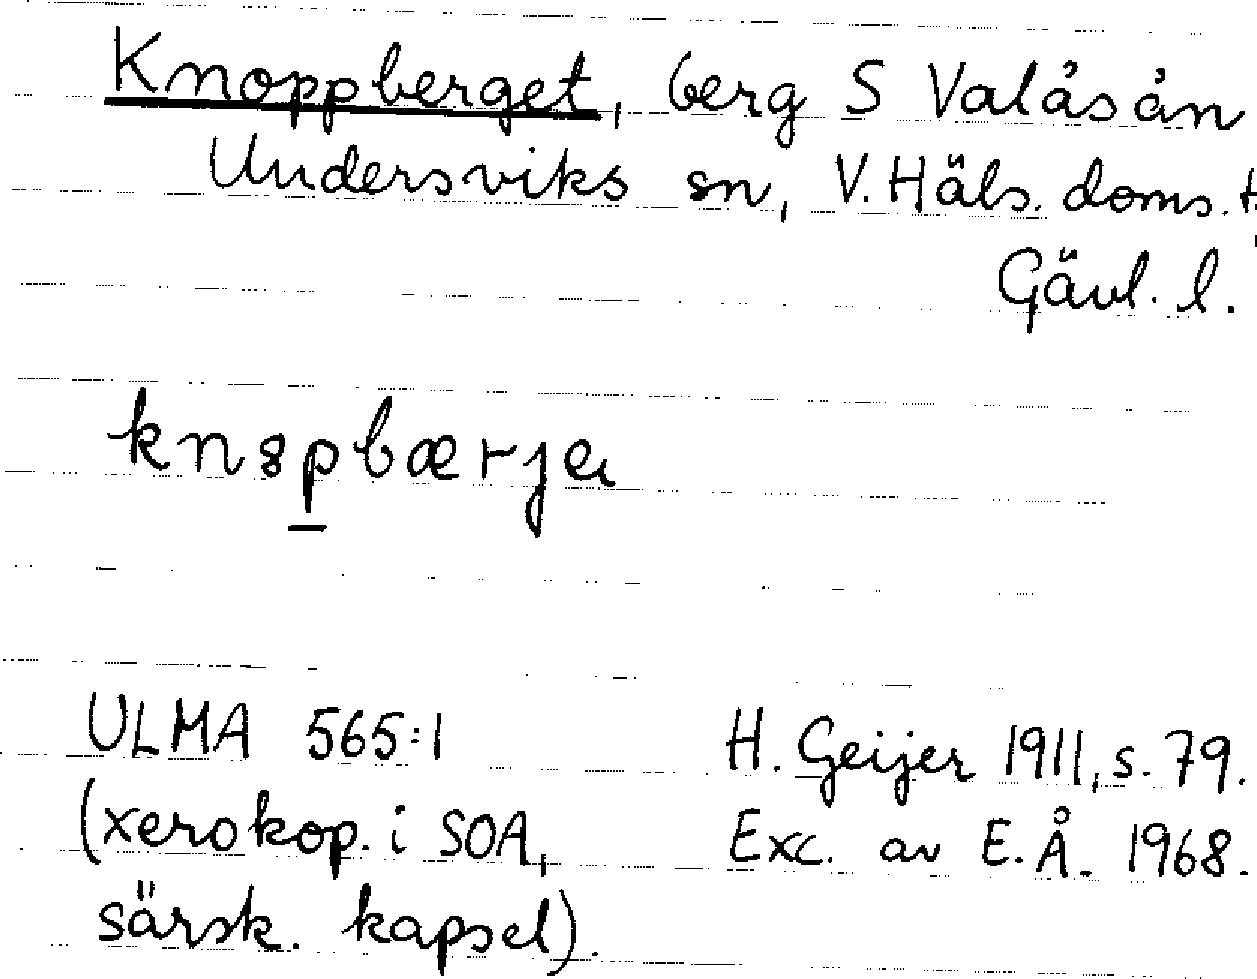 Knoppberget, berg S Valåsån
Undersviks sn, V. Häls. doms.
Gävl. l.
ULMA 565:1
H. Geijer 1911, s. 79.
(xerokop. i SOA,
Exc. av E.Å. 1968.
särsk. kapsel).